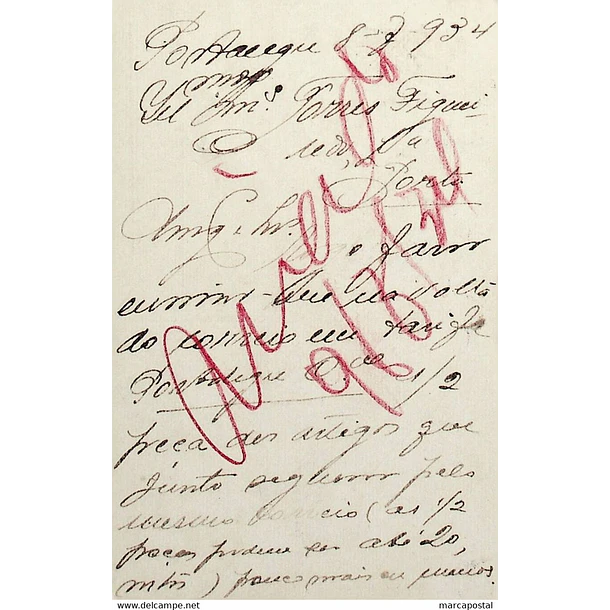 Portalegre 8-7-934
Torres Figuei-
redo, Lda
Porto
Amgos Snrs
favor
enviar-me na volta
do correio em tarifa
Portalegre 21/2
peça dos artigos que
junto seguem pelo
mesmo correio (as 1/2
peças podem ser até 20,
mts) pouco mais ou menos.
9/8/34
www.delcampe.net
marcapostal